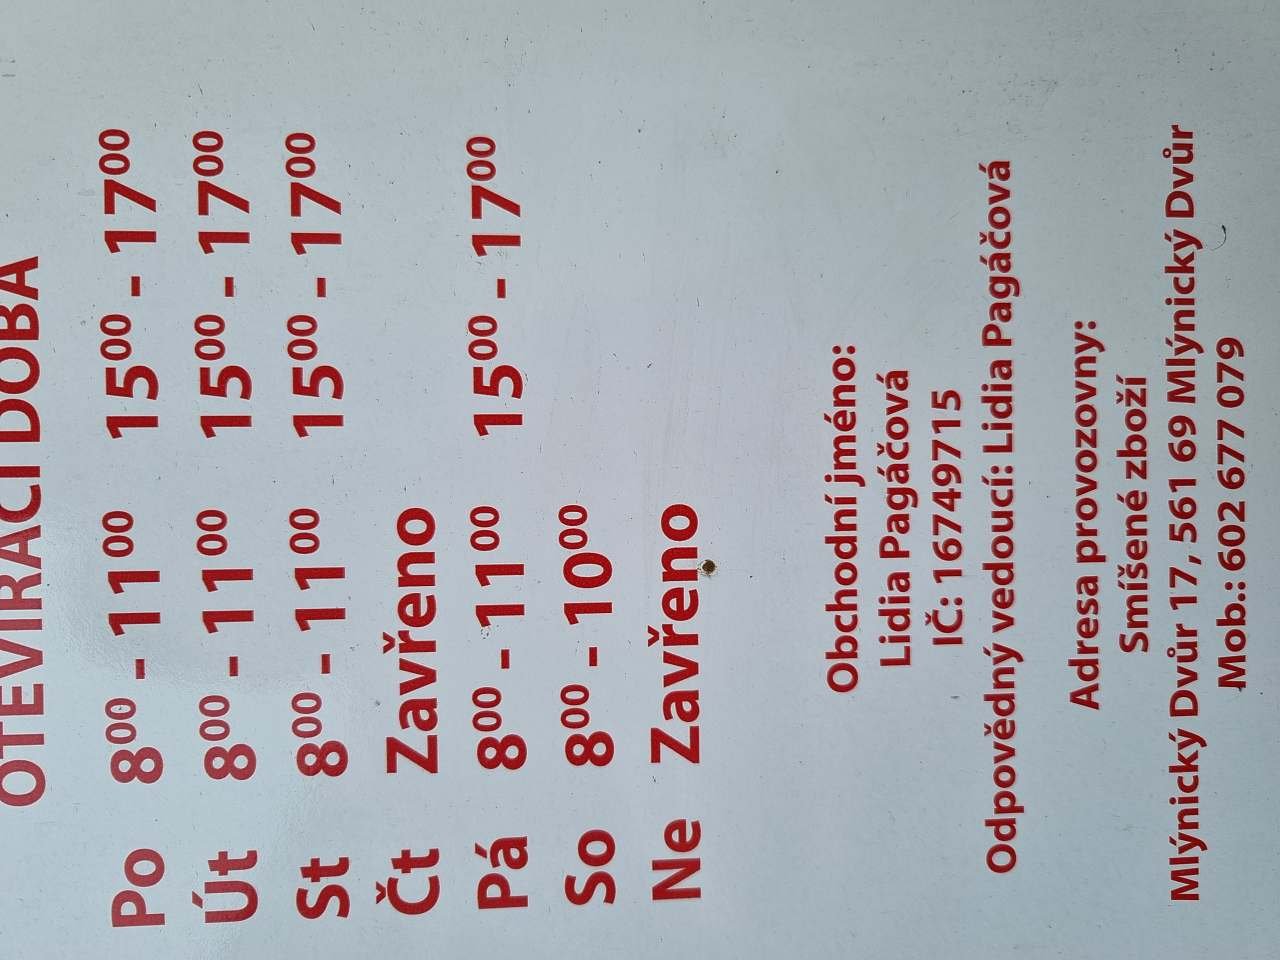 OTEVÍRACÍ DOBA
Po 8⁰⁰ - 11⁰⁰ 15⁰⁰ - 17⁰⁰
Út 8⁰⁰ - 11⁰⁰ 15⁰⁰ - 17⁰⁰
St 8⁰⁰ - 11⁰⁰ 15⁰⁰ - 17⁰⁰
Čt Zavřeno
Pá 8⁰⁰ - 11⁰⁰ 15⁰⁰ - 17⁰⁰
So 8⁰⁰ - 10⁰⁰
Ne Zavřeno
Obchodní jméno:
Lidia Pagáčová
IČ: 16749715
Odpovědný vedoucí: Lidia Pagáčová
Adresa provozovny:
Smíšené zboží
Mlýnický Dvůr 17, 561 69 Mlýnický Dvůr
Mob.: 602 677 079